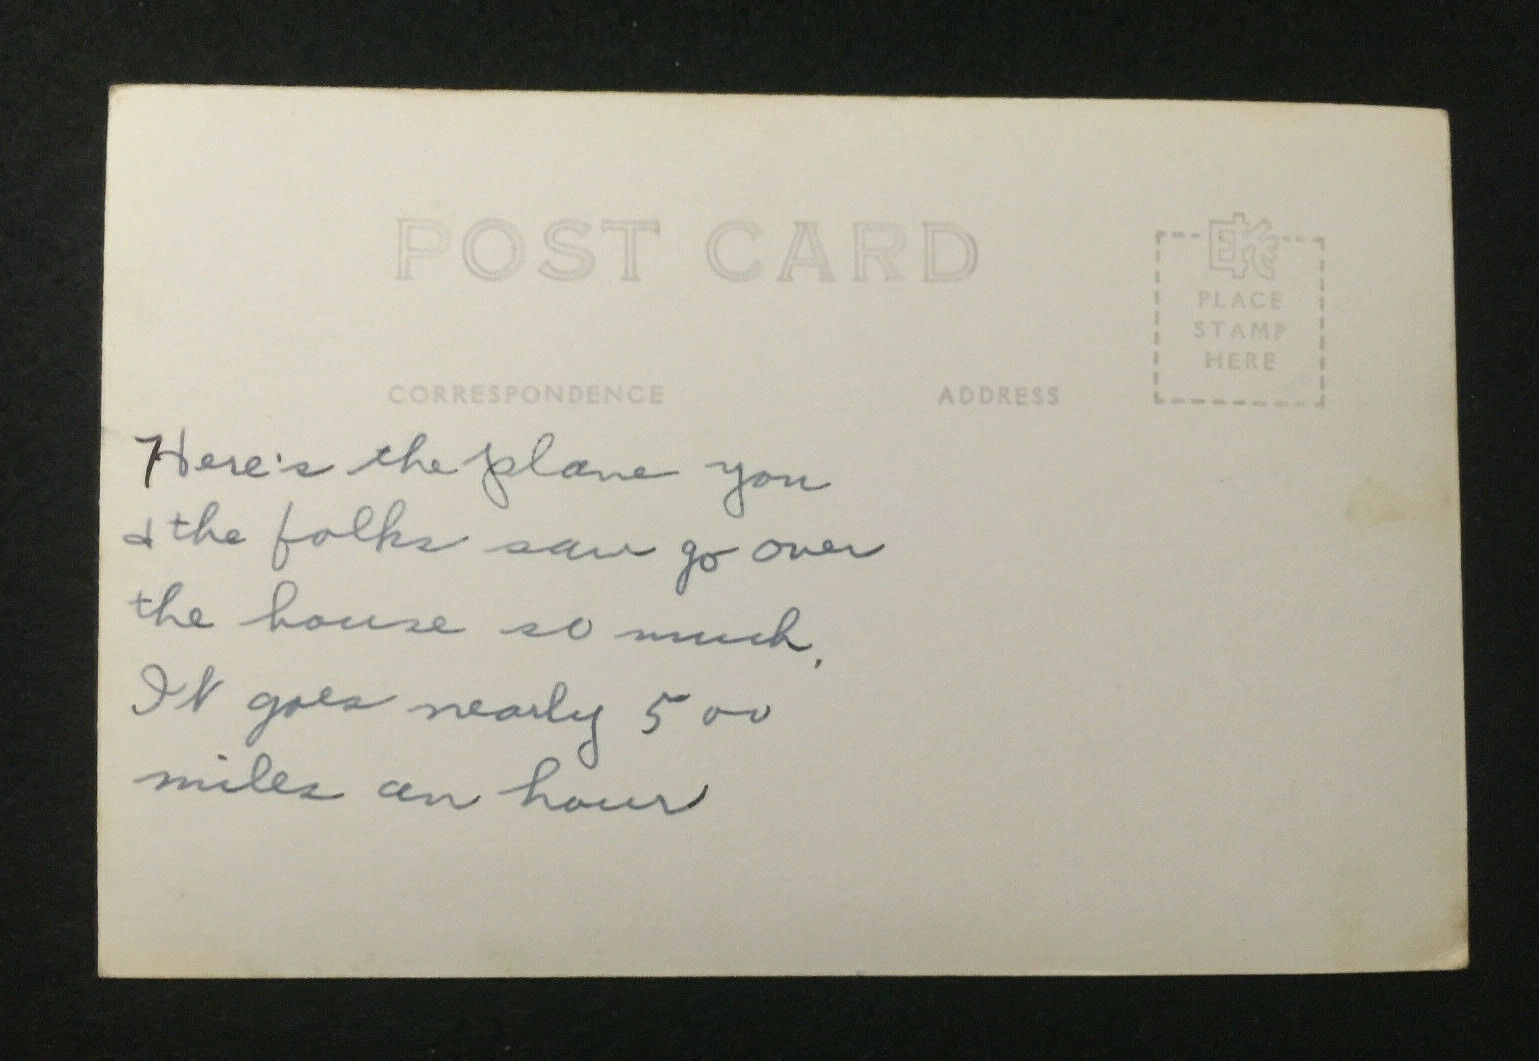 POST CARD
EKC
PLACE
STAMP
HERE
CORRESPONDENCE
ADDRESS
Here's the plane you
& the folks saw go over
the house so much.
It goes nearly 500
miles an hour